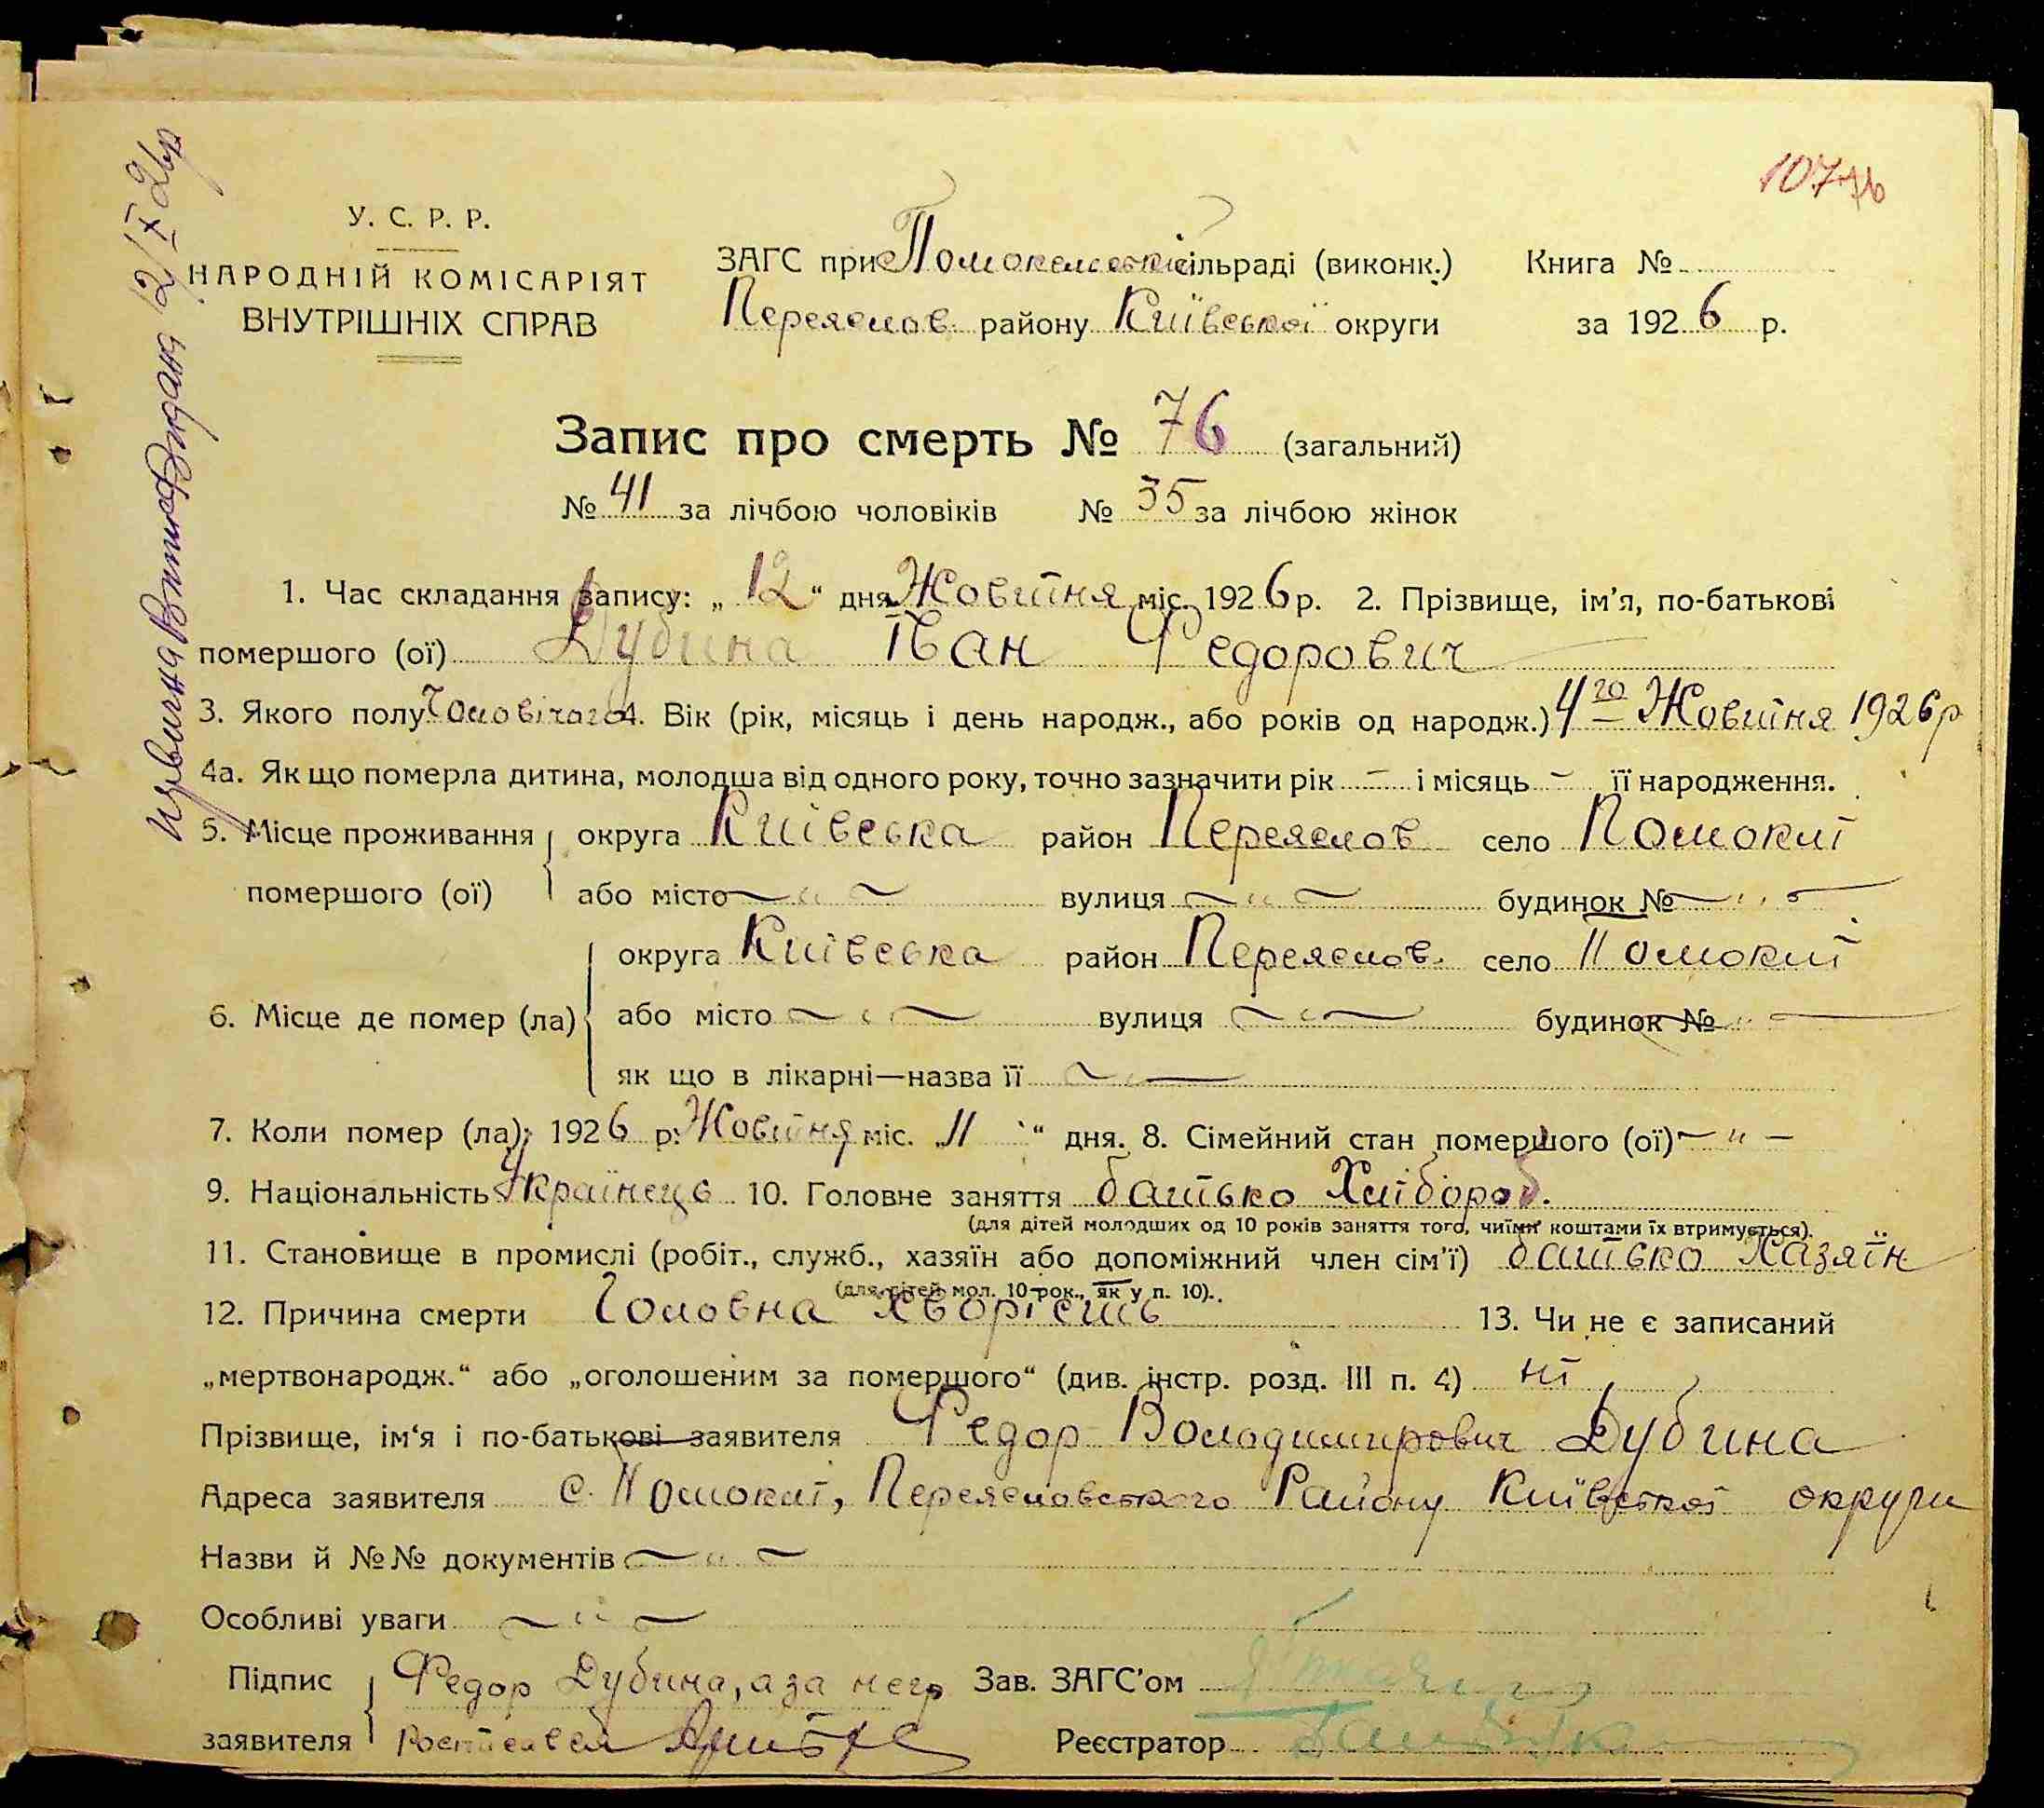 107
У. С. Р. Р.
НАРОДНІЙ КОМІСАРІЯТ
ВНУТРІШНІХ СПРАВ
ЗАГС при Помоклиській сільраді (виконк.)
Переяслов. району Київської округи
Книга №
за 1926 р.
Запис про смерть № 76 (загальний)
№ 41 за лічбою чоловіків № 35 за лічбою жінок
1. Час складання запису: „12“ дня Жовтня міс. 1926 р. 2. Прізвище, ім’я, по-батькові
помершого (ої) Дубина Іван Федорович
3. Якого полу Чоловічого 4. Вік (рік, місяць і день народж., або років од народж.) 4го Жовтня 1926 р
4а. Як що померла дитина, молодша від одного року, точно зазначити рік – і місяць – її народження.
5. Місце проживання округа Київська район Переяслов село Помоклі
помершого (ої) або місто ~ „ ~ вулиця ~ „ ~ будинок № ~ „ ~
округа Київська район Переяслов. село Помоклі
6. Місце де помер (ла) або місто ~ „ ~ вулиця ~ „ ~ будинок № „ ~
як що в лікарні—назва її ~ —
7. Коли помер (ла): 1926 р. Жовтня міс. „11“ дня. 8. Сімейний стан помершого (ої) ~ „ –
9. Національність Українець 10. Головне заняття батько Хлібороб.
(для дітей молодших од 10 років заняття того, чиїми коштами їх втримується).
11. Становище в промислі (робіт., служб., хазяїн або допоміжний член сім’ї) батько Хазяїн
(для дітей мол. 10 рок., як у п. 10).
12. Причина смерти Головна хворість 13. Чи не є записаний
„мертвонародж.“ або „оголошеним за помершого“ (див. інстр. розд. III п. 4) ні
Прізвище, ім‘я і по-батькові заявителя Федор Володимирович Дубина
Адреса заявителя с. Помоклі, Переясловского Району Київської округи
Назви й №№ документів ~ „ ~
Особливі уваги ~ „ ~
Підпис Федор Дубина, а за него Зав. ЗАГС’ом
заявителя Реєстратор